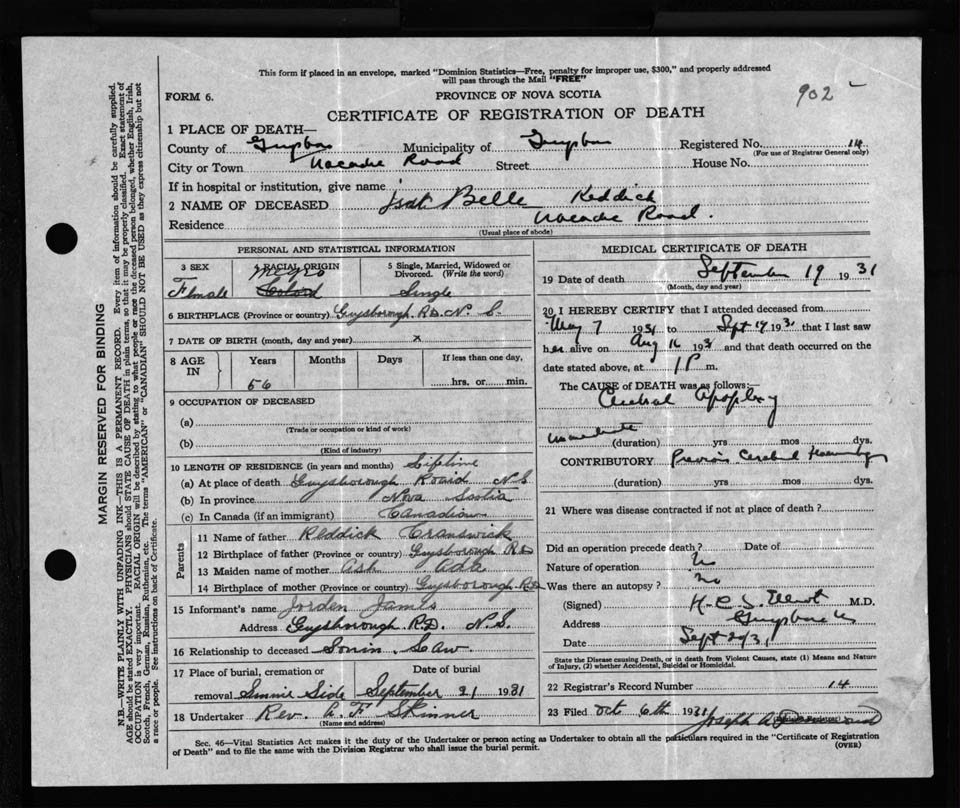 This form if placed in an envelope, marked "Dominion Statistics—Free, penalty for improper use, $300," and properly addressed
will pass through the Mail "FREE"
902
FORM 6.
PROVINCE OF NOVA SCOTIA
CERTIFICATE OF REGISTRATION OF DEATH
1 PLACE OF DEATH—
County of Guysboro Municipality of Guysboro Registered No. 14
(For use of Registrar General only)
City or Town Road Street House No.
If in hospital or institution, give name
2 NAME OF DECEASED Belle Reddick
Residence Road.
(Usual place of abode)
PERSONAL AND STATISTICAL INFORMATION
3 SEX RACIAL ORIGIN 5 Single, Married, Widowed or Divorced. (Write the word)
Negro
Female Colored Single
6 BIRTHPLACE (Province or country) Guysborough RD. N. S.
7 DATE OF BIRTH (month, day and year) x
8 AGE IN Years Months Days If less than one day,
56 hrs. or min.
9 OCCUPATION OF DECEASED
(a)
(Trade or occupation or kind of work)
(b)
(Kind of industry)
10 LENGTH OF RESIDENCE (in years and months) Lifetime
(a) At place of death Guysborough Roard N S
(b) In province Nova Scotia
(c) In Canada (if an immigrant) Canadian
Parents
11 Name of father Reddick Cranswick
12 Birthplace of father (Province or country) Guysborough RD
13 Maiden name of mother Ash Ada
14 Birthplace of mother (Province or country) Guysborough RD
15 Informant's name Jorden James
Address Guysborough RD. N.S.
16 Relationship to deceased Sonin Law
17 Place of burial, cremation or Date of burial
removal Sunnie Side September 21 1931
18 Undertaker Rev. A. F. Skinner
(Name and address)
MEDICAL CERTIFICATE OF DEATH
19 Date of death September 19 1931
(Month, day and year)
20 I HEREBY CERTIFY that I attended deceased from
May 7 1931 to Sept 19 1931 that I last saw
her alive on Aug 16 1931 and that death occurred on the
date stated above, at 1 P m.
The CAUSE of DEATH was as follows:—
Cerebral Apoplexy
immediate (duration) yrs mos dys.
CONTRIBUTORY Previous Cerebral Hemorrhage
(duration) yrs mos dys.
21 Where was disease contracted if not at place of death?
Did an operation precede death? Date of
Nature of operation No
Was there an autopsy? No
(Signed) M.D.
Address Guysboro
Date Sept 21
State the Disease causing Death, or in death from Violent Causes, state (1) Means and Nature
of Injury, (2) whether Accidental, Suicidal or Homicidal.
22 Registrar's Record Number 14
23 Filed Oct 6th 1931 Joseph A
Sec. 46—Vital Statistics Act makes it the duty of the Undertaker or person acting as Undertaker to obtain all the particulars required in the "Certificate of Registration
of Death" and to file the same with the Division Registrar who shall issue the burial permit. (OVER)
MARGIN RESERVED FOR BINDING
N.B.—WRITE PLAINLY WITH UNFADING INK—THIS IS A PERMANENT RECORD. Every item of information should be carefully supplied.
AGE should be stated EXACTLY. PHYSICIANS should STATE CAUSE OF DEATH in plain terms, so that it may be properly classified. Exact statement of
OCCUPATION is very important. RACIAL ORIGIN will be described by stating to what people or race the deceased person belonged, whether English, Irish,
Scotch, French, German, Russian, Ruthenian, etc. The terms "AMERICAN" or "CANADIAN" SHOULD NOT BE USED as they express citizenship but not
a race or people. See instructions on back of Certificate.